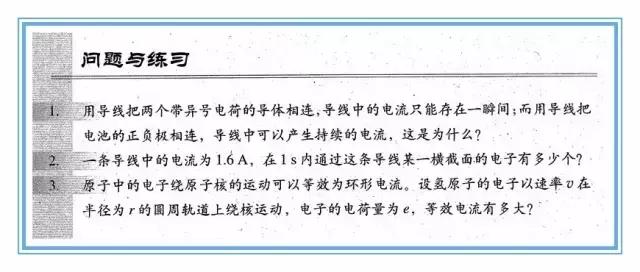 问题与练习
1. 用导线把两个带异号电荷的导体相连,导线中的电流只能存在一瞬间;而用导线把
电池的正负极相连,导线中可以产生持续的电流,这是为什么?
2. 一条导线中的电流为 1.6 A,在 1 s 内通过这条导线某一横截面的电子有多少个?
3. 原子中的电子绕原子核的运动可以等效为环形电流。设氢原子的电子以速率 v 在
半径为 r 的圆周轨道上绕核运动,电子的电荷量为 e,等效电流有多大?